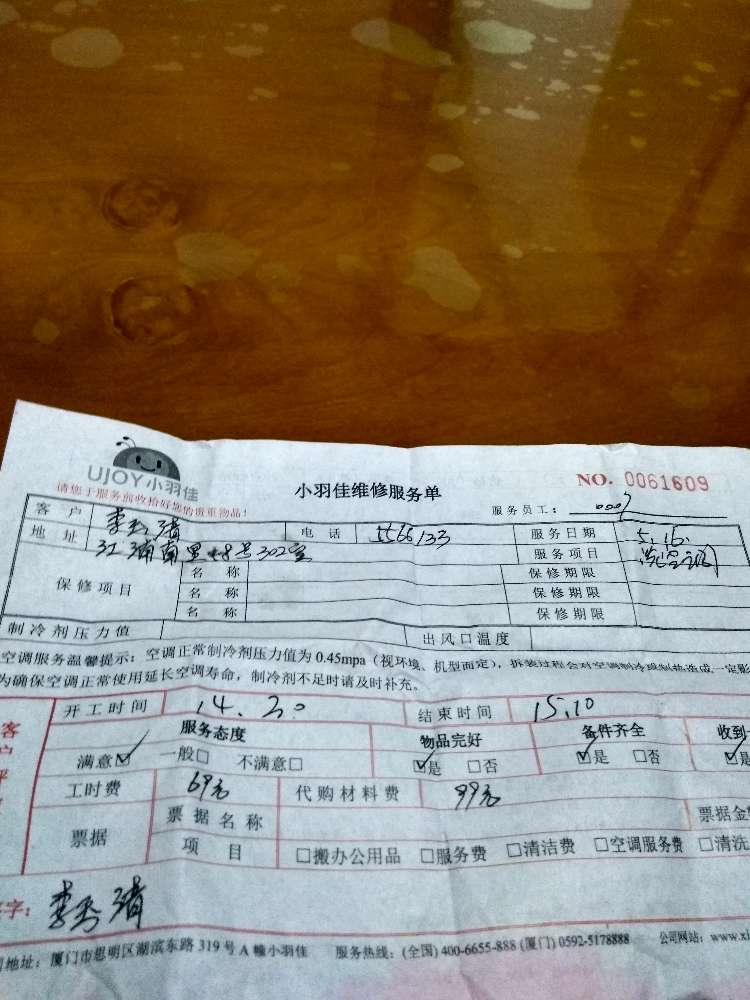 UJOY小羽佳
请您于服务前收拾好您的贵重物品!
小羽佳维修服务单
NO. 0061609
服务员工:
客户 李秀清 电话 5566133 服务日期 5.16.
地址 江浦南里48号302室 服务项目 洗空调
保修项目 名称 保修期限
名称 保修期限
名称 保修期限
制冷剂压力值 出风口温度
空调服务温馨提示:空调正常制冷剂压力值为0.45mpa(视环境、机型而定),拆装过程会对空调制冷或制热造成一定影
为确保空调正常使用延长空调寿命,制冷剂不足时请及时补充。
开工时间 14.20 结束时间 15.10
服务态度 物品完好 备件齐全 收到
满意☑ 一般□ 不满意□ ☑是 □否 ☑是 □否 ☑是
工时费 69元 代购材料费 99元
票据 票据名称 票据金
项目 □搬办公用品 □服务费 □清洁费 □空调服务费 □清洗
字: 李秀清
地址:厦门市思明区湖滨东路319号A幢小羽佳 服务热线:(全国)400-6655-888(厦门)0592-5178888 公司网站:www.xi